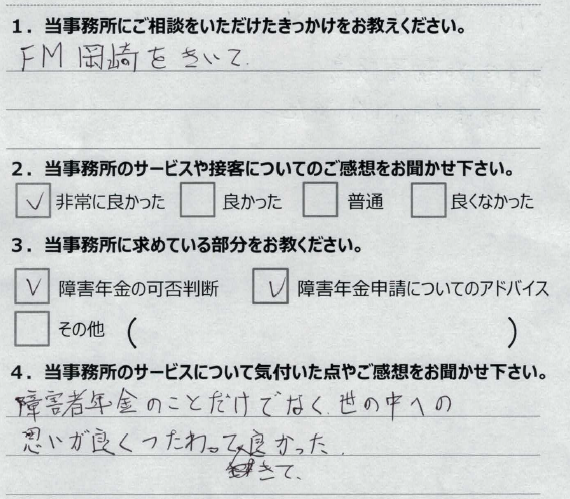 1．当事務所にご相談をいただけたきっかけをお教えください。
FM岡崎をきいて.
2．当事務所のサービスや接客についてのご感想をお聞かせ下さい。
非常に良かった 良かった 普通 良くなかった
3．当事務所に求めている部分をお教ください。
障害年金の可否判断 障害年金申請についてのアドバイス
その他 （ ）
4．当事務所のサービスについて気付いた点やご感想をお聞かせ下さい。
障害者年金のことだけでなく.世の中への
思いが良くつたわって良かった.
きて、